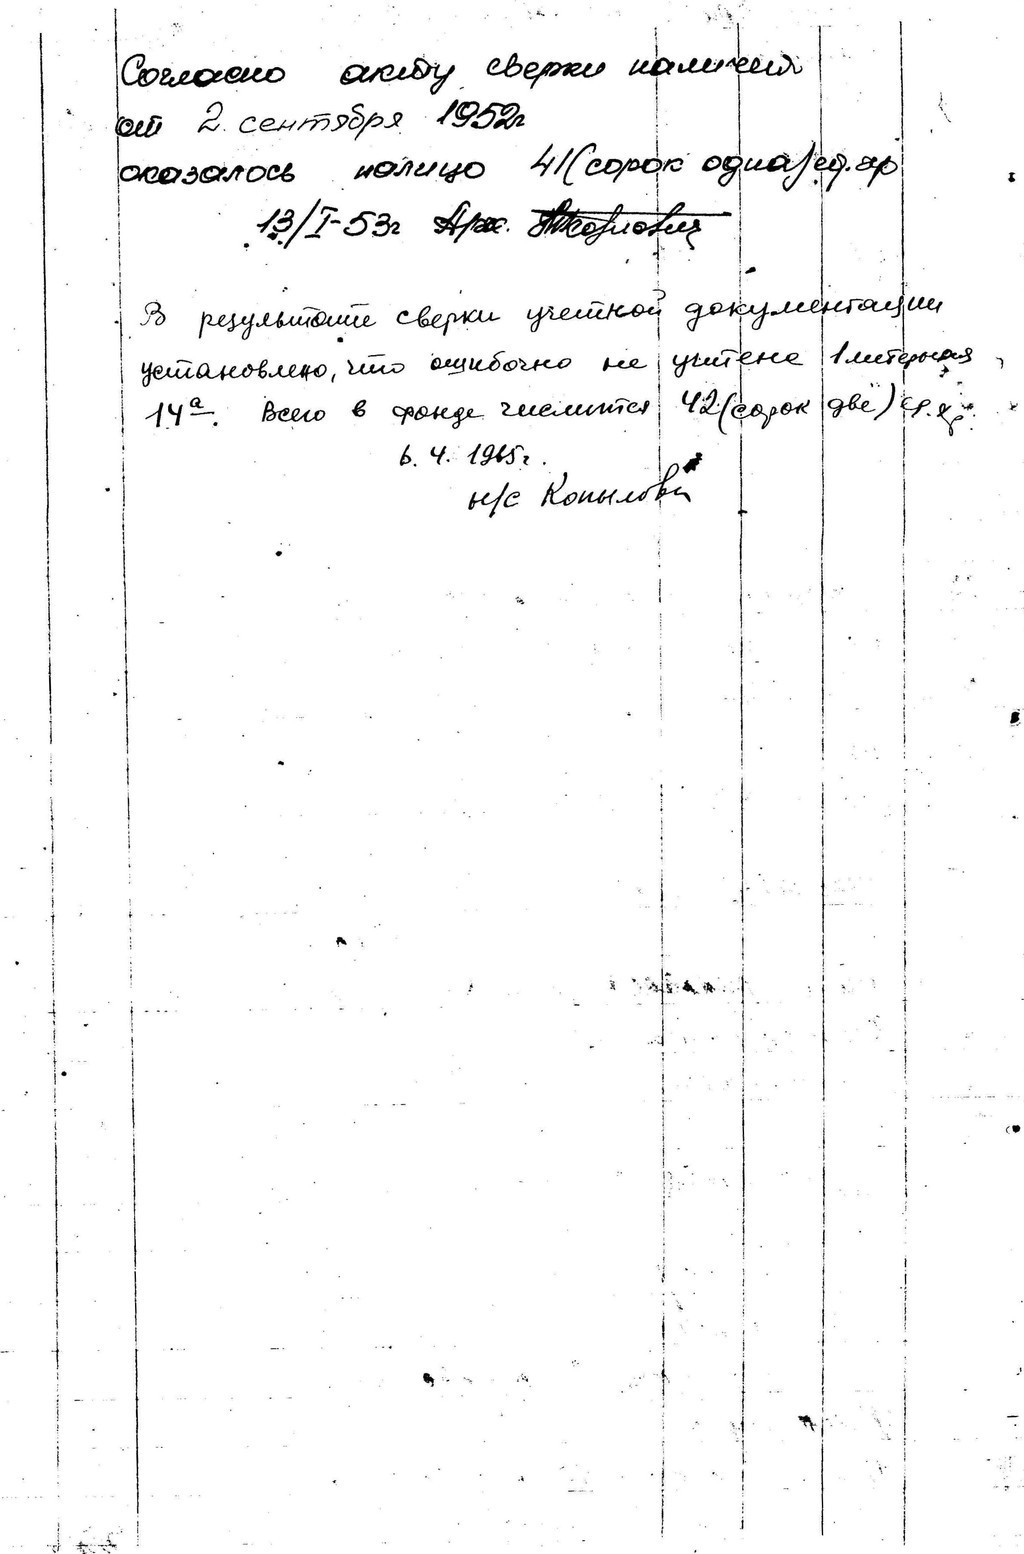 Согласно акту сверки наличия
от 2 сентября 1952г
оказалось налицо 41 (сорок одна) ед. хр
13/I-53г Арх.
В результате сверки учетной документации
установлено, что ошибочно не учтена 1 литерная
14а. Всего в фонде числится 42 (сорок две) ед. хр.
6. 4. 1965г.
н/с Копылова